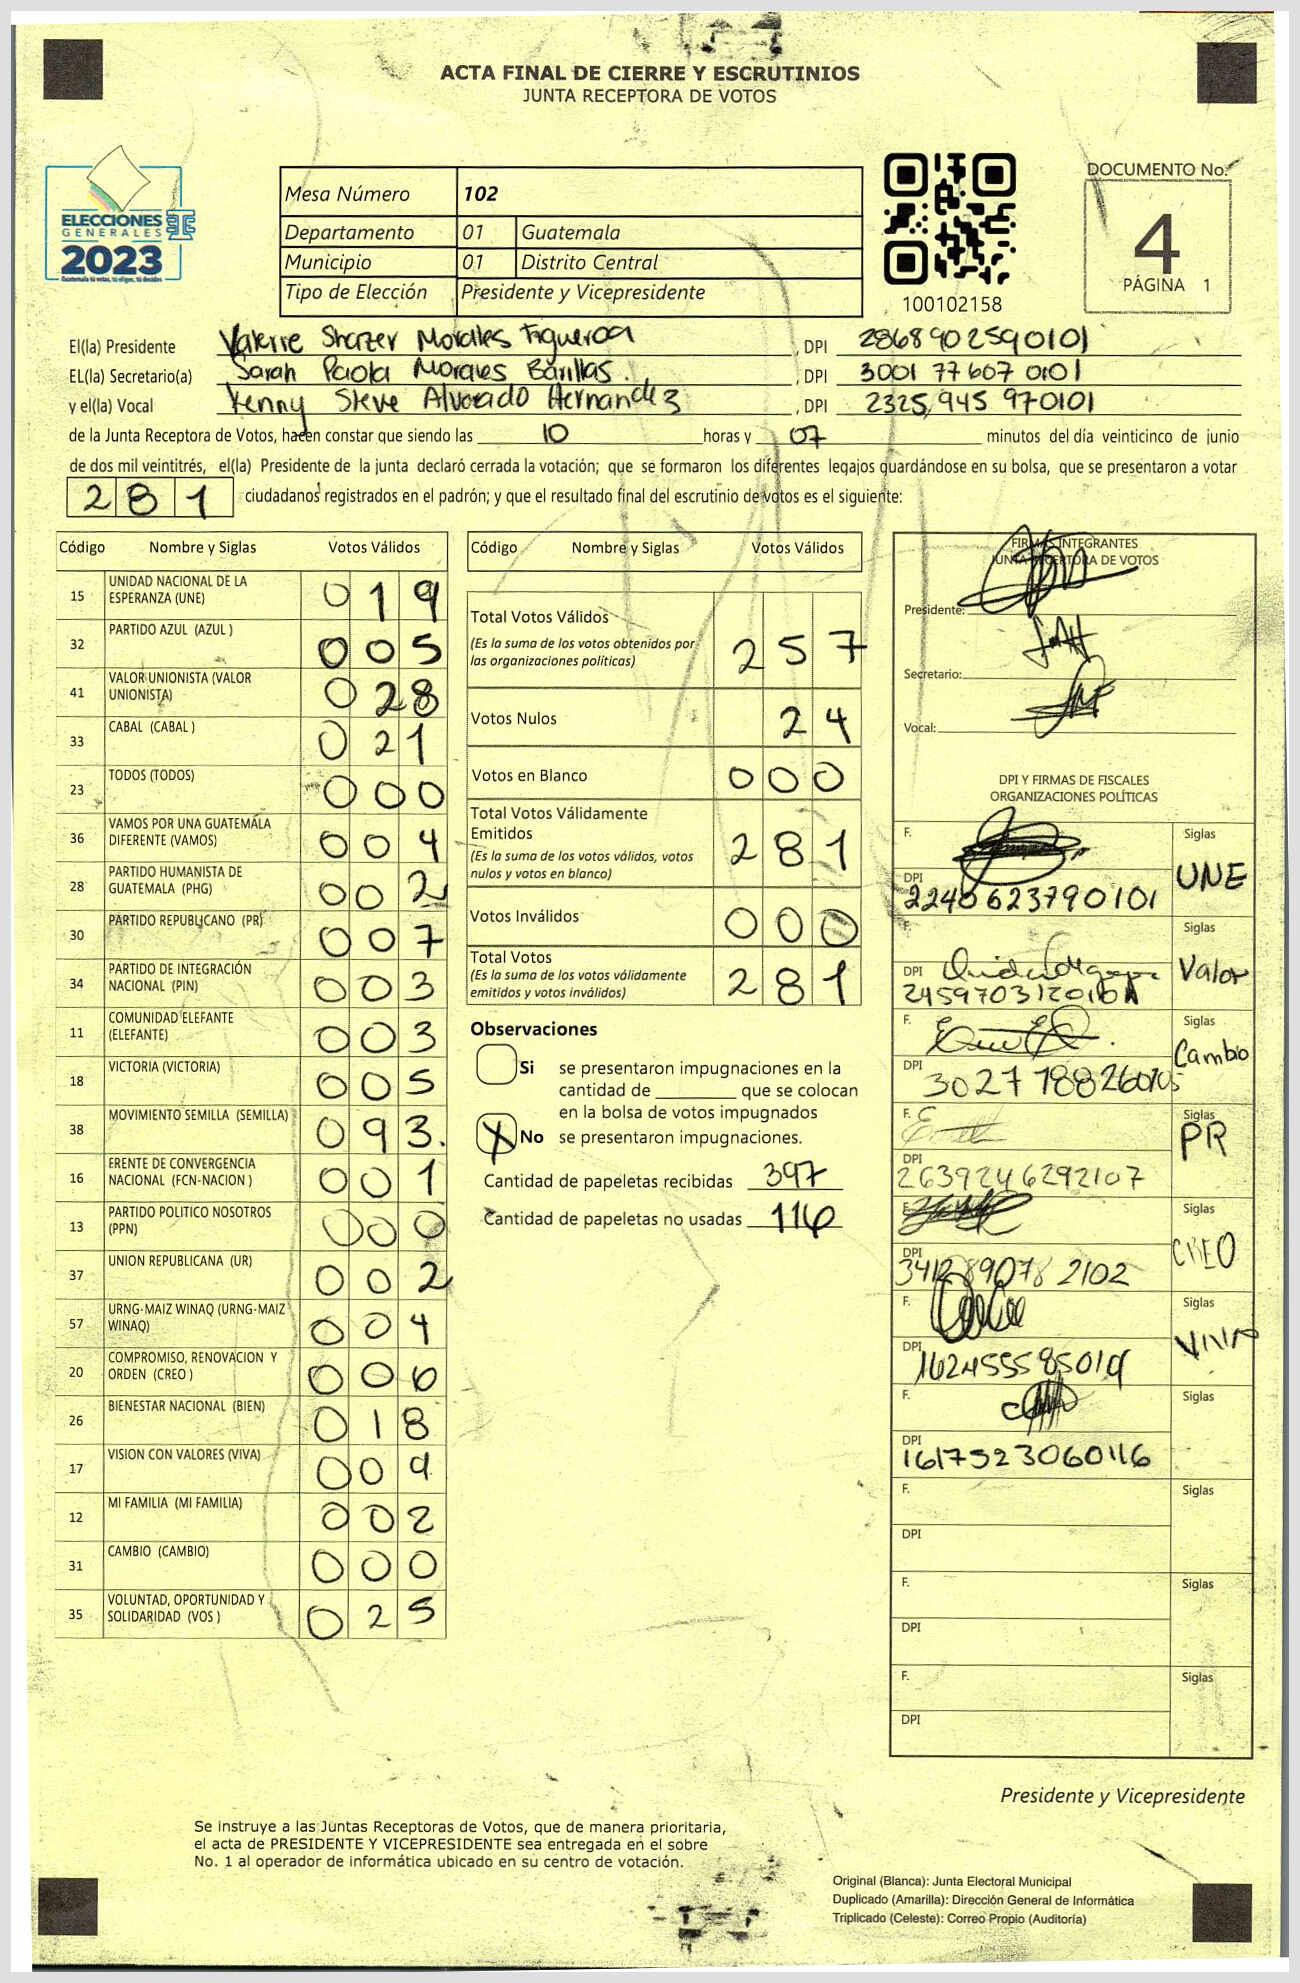 ACTA FINAL DE CIERRE Y ESCRUTINIOS
JUNTA RECEPTORA DE VOTOS
ELECCIONES
GENERALES
2023
Mesa Número 102
Departamento 01 Guatemala
Municipio 01 Distrito Central
Tipo de Elección Presidente y Vicepresidente
100102158
DOCUMENTO No.
4
PÁGINA 1
El(la) Presidente Valerie Sharzer Morales Figueroa , DPI 2868902590101
EL(la) Secretario(a) Sarah Paola Morales Barillas. , DPI 3001 77607 0101
y el(la) Vocal Yenny Steve Alvarado Hernandez , DPI 2325,945 970101
de la Junta Receptora de Votos, hacen constar que siendo las 10 horas y 07 minutos del día veinticinco de junio
de dos mil veintitrés, el(la) Presidente de la junta declaró cerrada la votación; que se formaron los diferentes legajos guardándose en su bolsa, que se presentaron a votar
281 ciudadanos registrados en el padrón; y que el resultado final del escrutinio de votos es el siguiente:
Código Nombre y Siglas Votos Válidos
15 UNIDAD NACIONAL DE LA ESPERANZA (UNE) 019
32 PARTIDO AZUL (AZUL ) 005
41 VALOR UNIONISTA (VALOR UNIONISTA) 028
33 CABAL (CABAL ) 021
23 TODOS (TODOS) 000
36 VAMOS POR UNA GUATEMALA DIFERENTE (VAMOS) 004
28 PARTIDO HUMANISTA DE GUATEMALA (PHG) 002
30 PARTIDO REPUBLICANO (PR) 007
34 PARTIDO DE INTEGRACIÓN NACIONAL (PIN) 003
11 COMUNIDAD ELEFANTE (ELEFANTE) 003
18 VICTORIA (VICTORIA) 005
38 MOVIMIENTO SEMILLA (SEMILLA) 093.
16 FRENTE DE CONVERGENCIA NACIONAL (FCN-NACION ) 001
13 PARTIDO POLITICO NOSOTROS (PPN) 000
37 UNION REPUBLICANA (UR) 002
57 URNG-MAIZ WINAQ (URNG-MAIZ WINAQ) 004
20 COMPROMISO, RENOVACION Y ORDEN (CREO ) 006
26 BIENESTAR NACIONAL (BIEN) 018
17 VISION CON VALORES (VIVA) 009
12 MI FAMILIA (MI FAMILIA) 002
31 CAMBIO (CAMBIO) 000
35 VOLUNTAD, OPORTUNIDAD Y SOLIDARIDAD (VOS ) 025
Código Nombre y Siglas Votos Válidos
Total Votos Válidos
(Es la suma de los votos obtenidos por
las organizaciones políticas) 257
Votos Nulos 24
Votos en Blanco 000
Total Votos Válidamente
Emitidos
(Es la suma de los votos válidos, votos
nulos y votos en blanco) 281
Votos Inválidos 000
Total Votos
(Es la suma de los votos válidamente
emitidos y votos inválidos) 281
Observaciones
Si se presentaron impugnaciones en la
cantidad de ________ que se colocan
en la bolsa de votos impugnados
X No se presentaron impugnaciones.
Cantidad de papeletas recibidas 397
Cantidad de papeletas no usadas 116
FIRMAS INTEGRANTES
JUNTA RECEPTORA DE VOTOS
Presidente:
Secretario:
Vocal:
DPI Y FIRMAS DE FISCALES
ORGANIZACIONES POLÍTICAS
F. Siglas UNE
DPI 2240623790101
F. Siglas Valor
DPI
F. Siglas Cambio
DPI
F. Siglas PR
DPI 2639246292107
F. Siglas CREO
DPI 3412890782102
F. Siglas VIVA
DPI
F. Siglas
DPI 1617523060116
F. Siglas
DPI
F. Siglas
DPI
F. Siglas
DPI
Presidente y Vicepresidente
Se instruye a las Juntas Receptoras de Votos, que de manera prioritaria,
el acta de PRESIDENTE Y VICEPRESIDENTE sea entregada en el sobre
No. 1 al operador de informática ubicado en su centro de votación.
Original (Blanca): Junta Electoral Municipal
Duplicado (Amarilla): Dirección General de Informática
Triplicado (Celeste): Correo Propio (Auditoría)